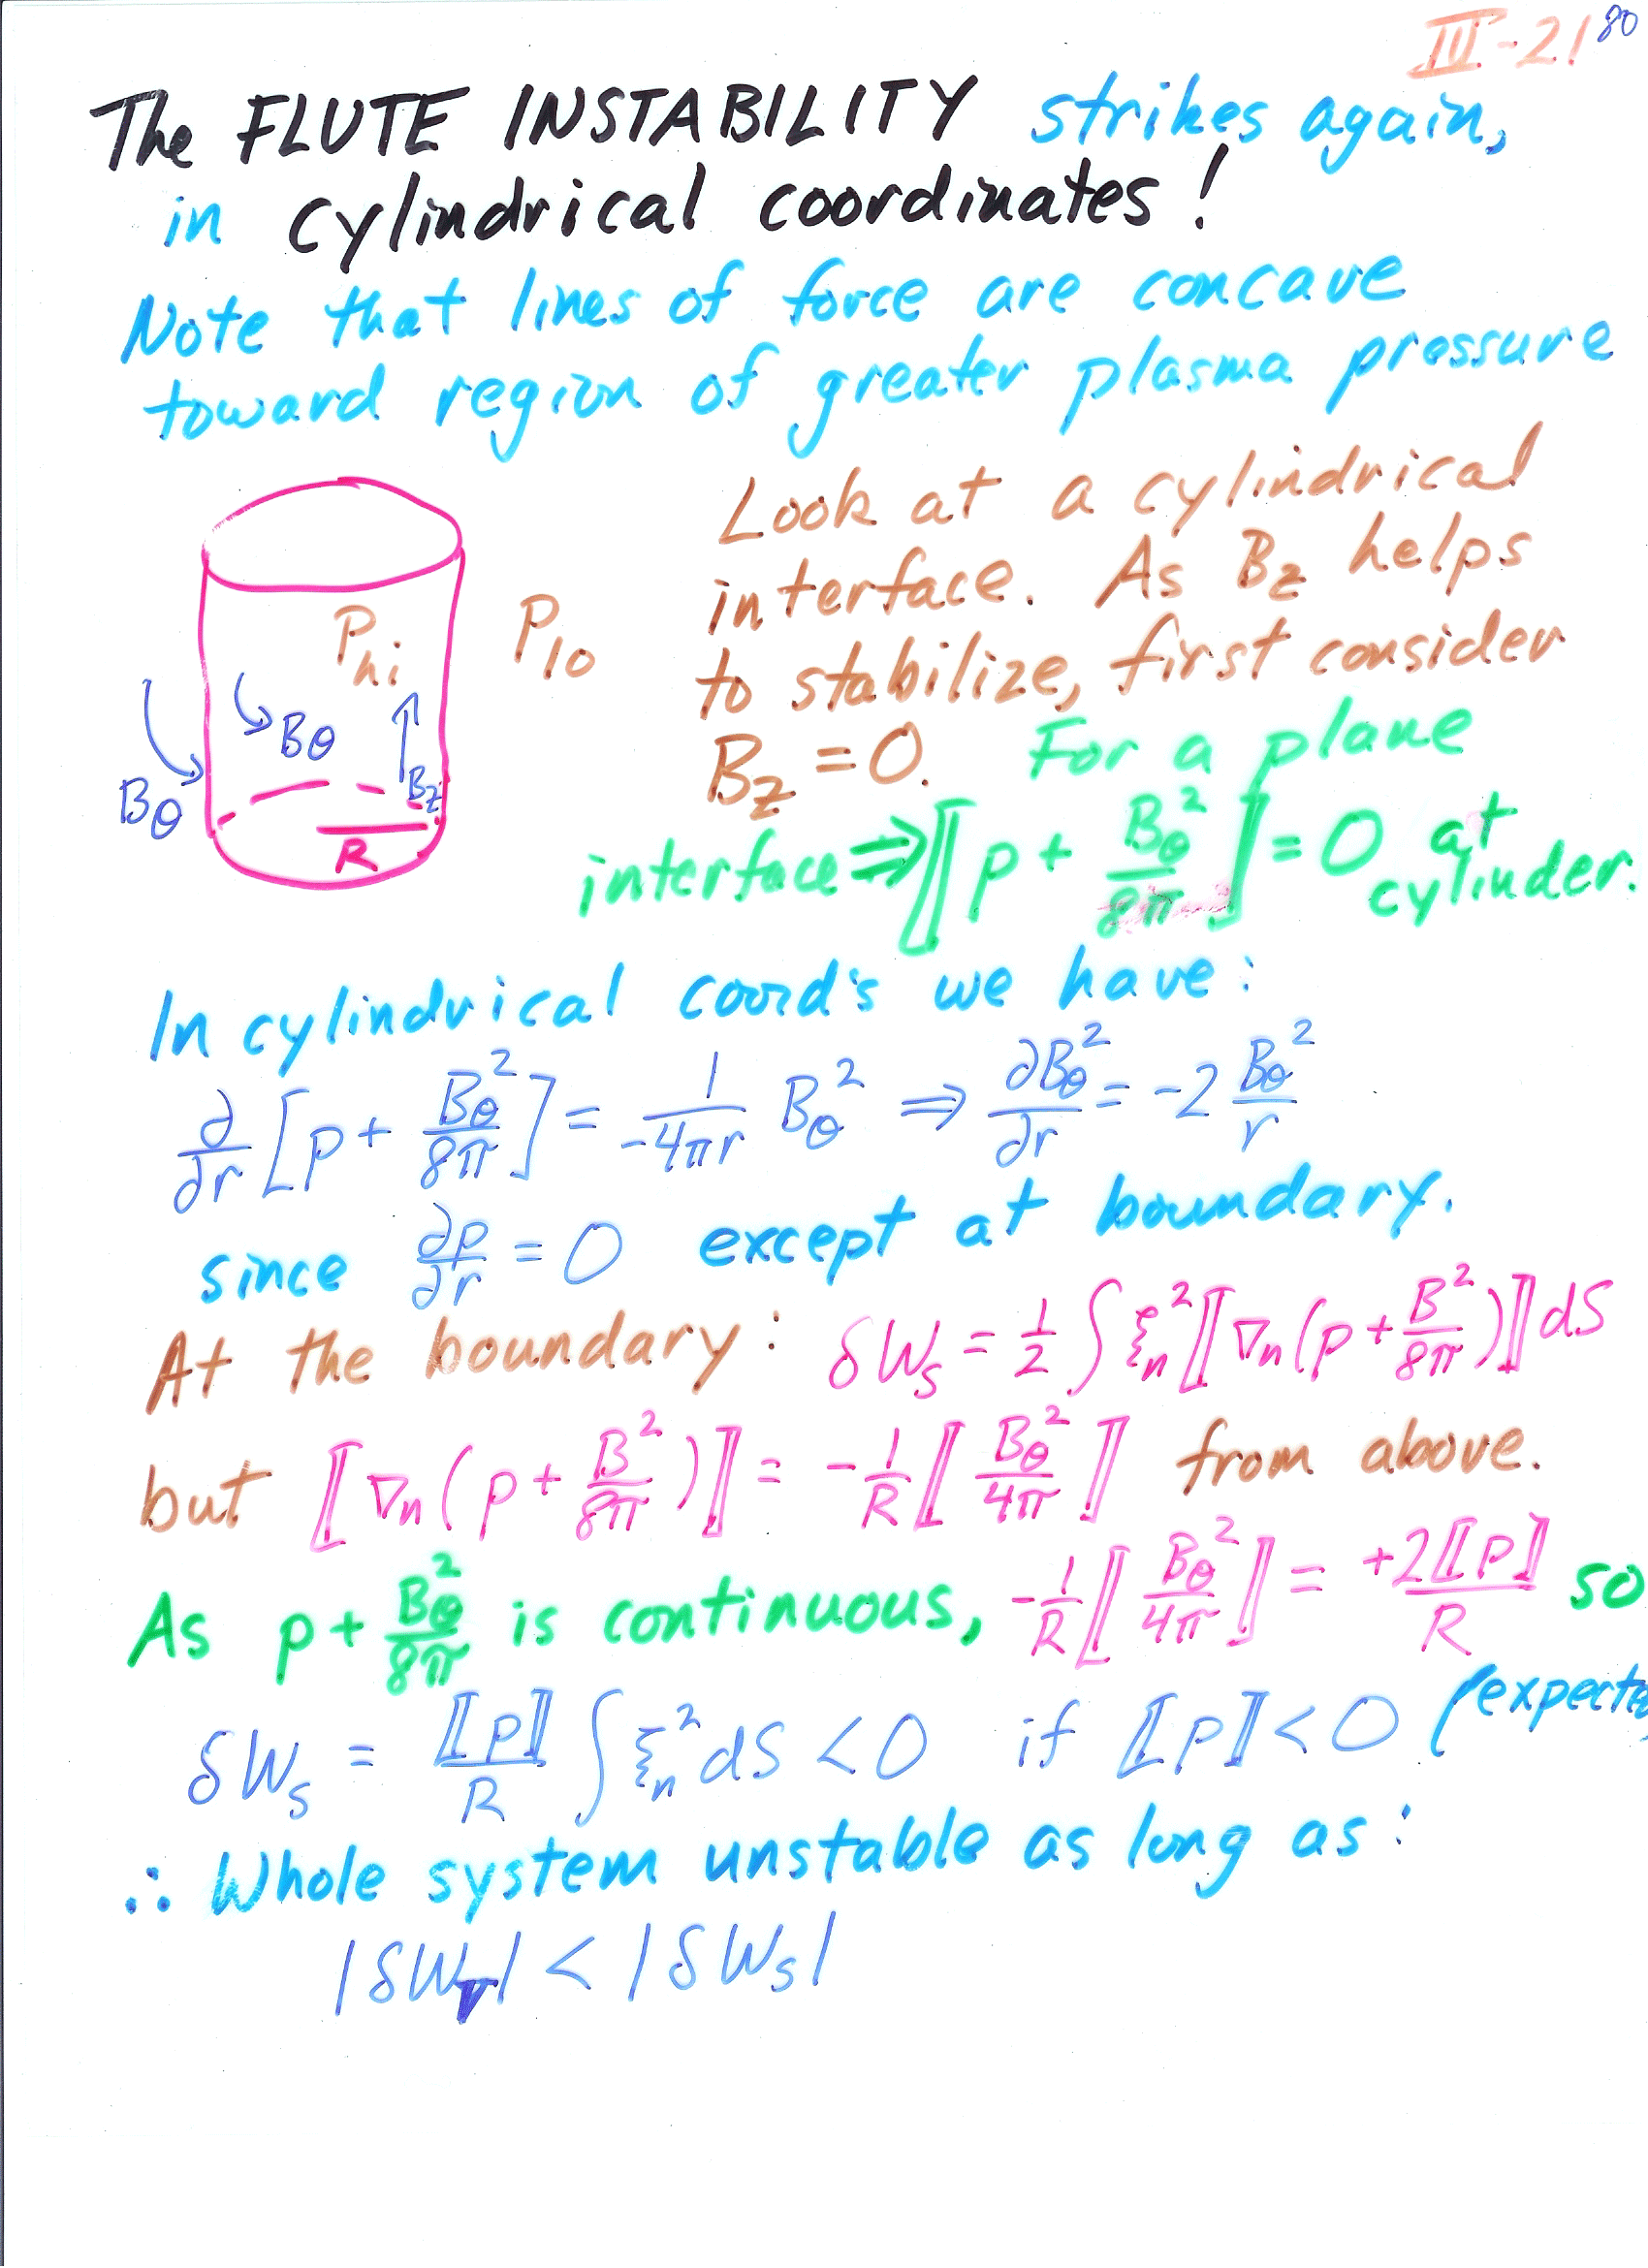 III-21 80
The FLUTE INSTABILITY strikes again,
in cylindrical coordinates!
Note that lines of force are concave
toward region of greater plasma pressure
Look at a cylindrical
interface. As Bz helps
to stabilize, first consider
Bz = 0. For a plane
interface ⇒ ⟦p + Bθ²/8π⟧ = 0 at
cylinder.
Phi
Plo
Bθ
Bθ
Bz
R
In cylindrical coord's we have:
∂/∂r [p + Bθ²/8π] = 1/-4πr Bθ² ⇒ ∂Bθ²/∂r = -2 Bθ²/r
since ∂p/∂r = 0 except at boundary.
At the boundary: δWs = 1/2 ∫ ξn² ⟦∇n(p + B²/8π)⟧ dS
but ⟦∇n(p + B²/8π)⟧ = -1/R ⟦Bθ²/4π⟧ from above.
As p + Bθ²/8π is continuous, -1/R ⟦Bθ²/4π⟧ = +2⟦p⟧/R so
δWs = ⟦p⟧/R ∫ ξn² dS < 0 if ⟦p⟧ < 0 (expecte
∴ Whole system unstable as long as:
|δW| < |δWs|